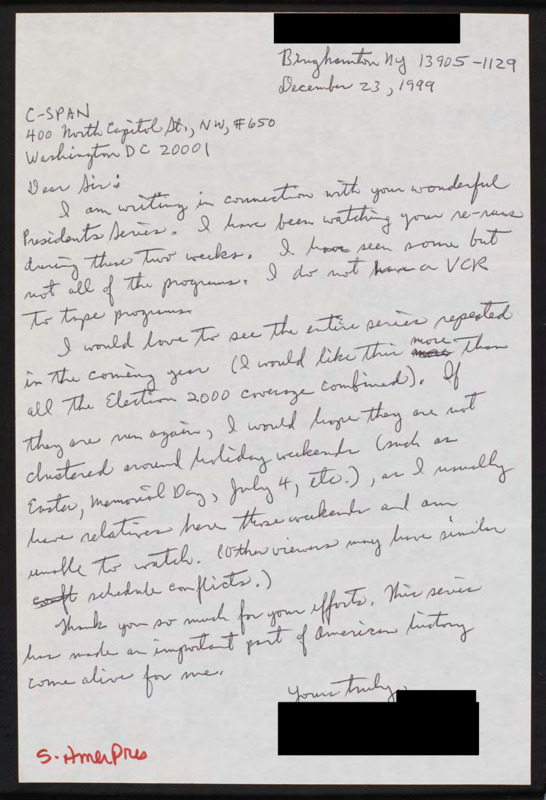 Binghamton NY 13905-1129
December 23, 1999
C-SPAN
400 North Capitol St., NW, #650
Washington DC 20001
Dear Sir:
I am writing in connection with your wonderful
Presidents Series. I have been watching your re-runs
during these two weeks. I have seen some but
not all of the programs. I do not have a VCR
to tape programs.
I would love to see the entire series repeated
in the coming year (I would like this more than
all the Election 2000 coverage combined). If
they are run again, I would hope they are not
clustered around holiday weekends (such as
Easter, Memorial Day, July 4, etc.), as I usually
have relatives here those weekends and am
unable to watch. (Other viewers may have similar
schedule conflicts.)
Thank you so much for your efforts. This series
has made an important part of American history
come alive for me.
Yours truly,
S. AmerPres